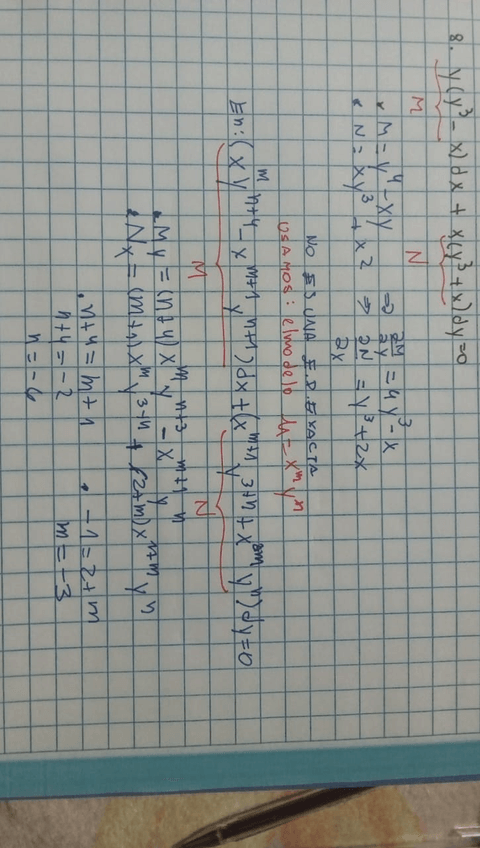 8. y(y³ - x)dx + x(y³ + x)dy = 0
M N
* M = y⁴ - xy ⇒ ∂M/∂y = 4y³ - x
* N = xy³ + x² ⇒ ∂N/∂x = y³ + 2x
NO ES UNA E.D. EXACTA
USAMOS: el modelo μ = xᵐyⁿ
En: (xᵐyⁿ⁺⁴ - xᵐ⁺¹yⁿ⁺¹)dx + (xᵐ⁺¹y³⁺ⁿ + x²⁺ᵐyⁿ)dy = 0
M N
* My = (n+4)xᵐyⁿ⁺³ - xᵐ⁺¹yⁿ
* Nx = (m+1)xᵐy³⁺ⁿ + (2+m)x¹⁺ᵐyⁿ
• n+4 = m+1 • -1 = 2+m
n+4 = -2 m = -3
n = -6